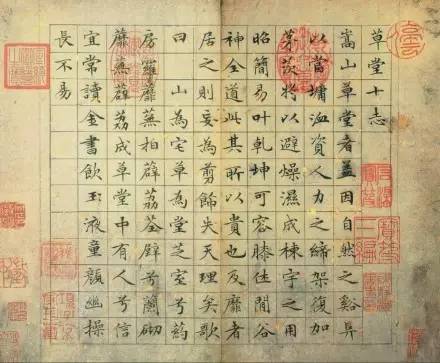 草堂十志
嵩山草堂者蓋因自然之谿阜
以當墉洫資人力之締架復加
茅茨將以避燥濕成棟宇之用
昭簡易叶乾坤可容膝休閒谷
神全道此其所以貴也及靡者
居之則妄為剪飾失天理矣歌
曰山為宅草為堂芝室兮葯
房羅蘼蕪相薜荔荃壁兮蘭砌
蘼蕪薜荔成草堂中有人兮信
宜常讀金書飲玉液童顏幽操
長不易